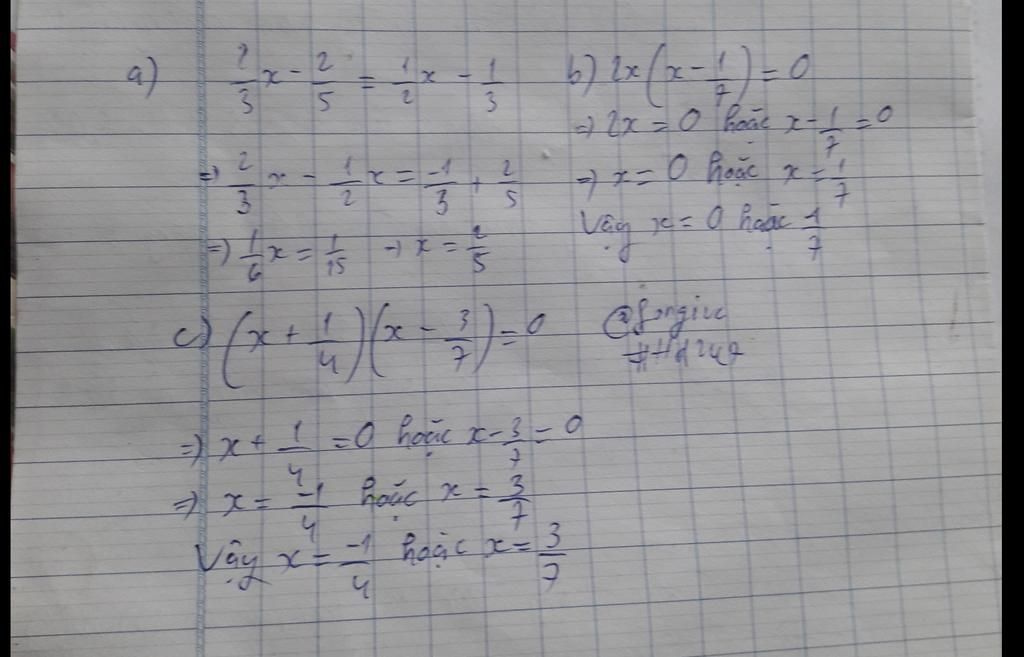 a) 2/3 x - 2/5 = 1/2 x - 1/3
=> 2/3 x - 1/2 x = -1/3 + 2/5
=> 1/6 x = 1/15 -> x = 2/5
b) 2x(x - 1/7) = 0
=> 2x = 0 hoặc x - 1/7 = 0
=> x = 0 hoặc x = 1/7
Vậy x = 0 hoặc 1/7
c) (x + 1/4)(x - 3/7) = 0
=> x + 1/4 = 0 hoặc x - 3/7 = 0
=> x = -1/4 hoặc x = 3/7
Vậy x = -1/4 hoặc x = 3/7